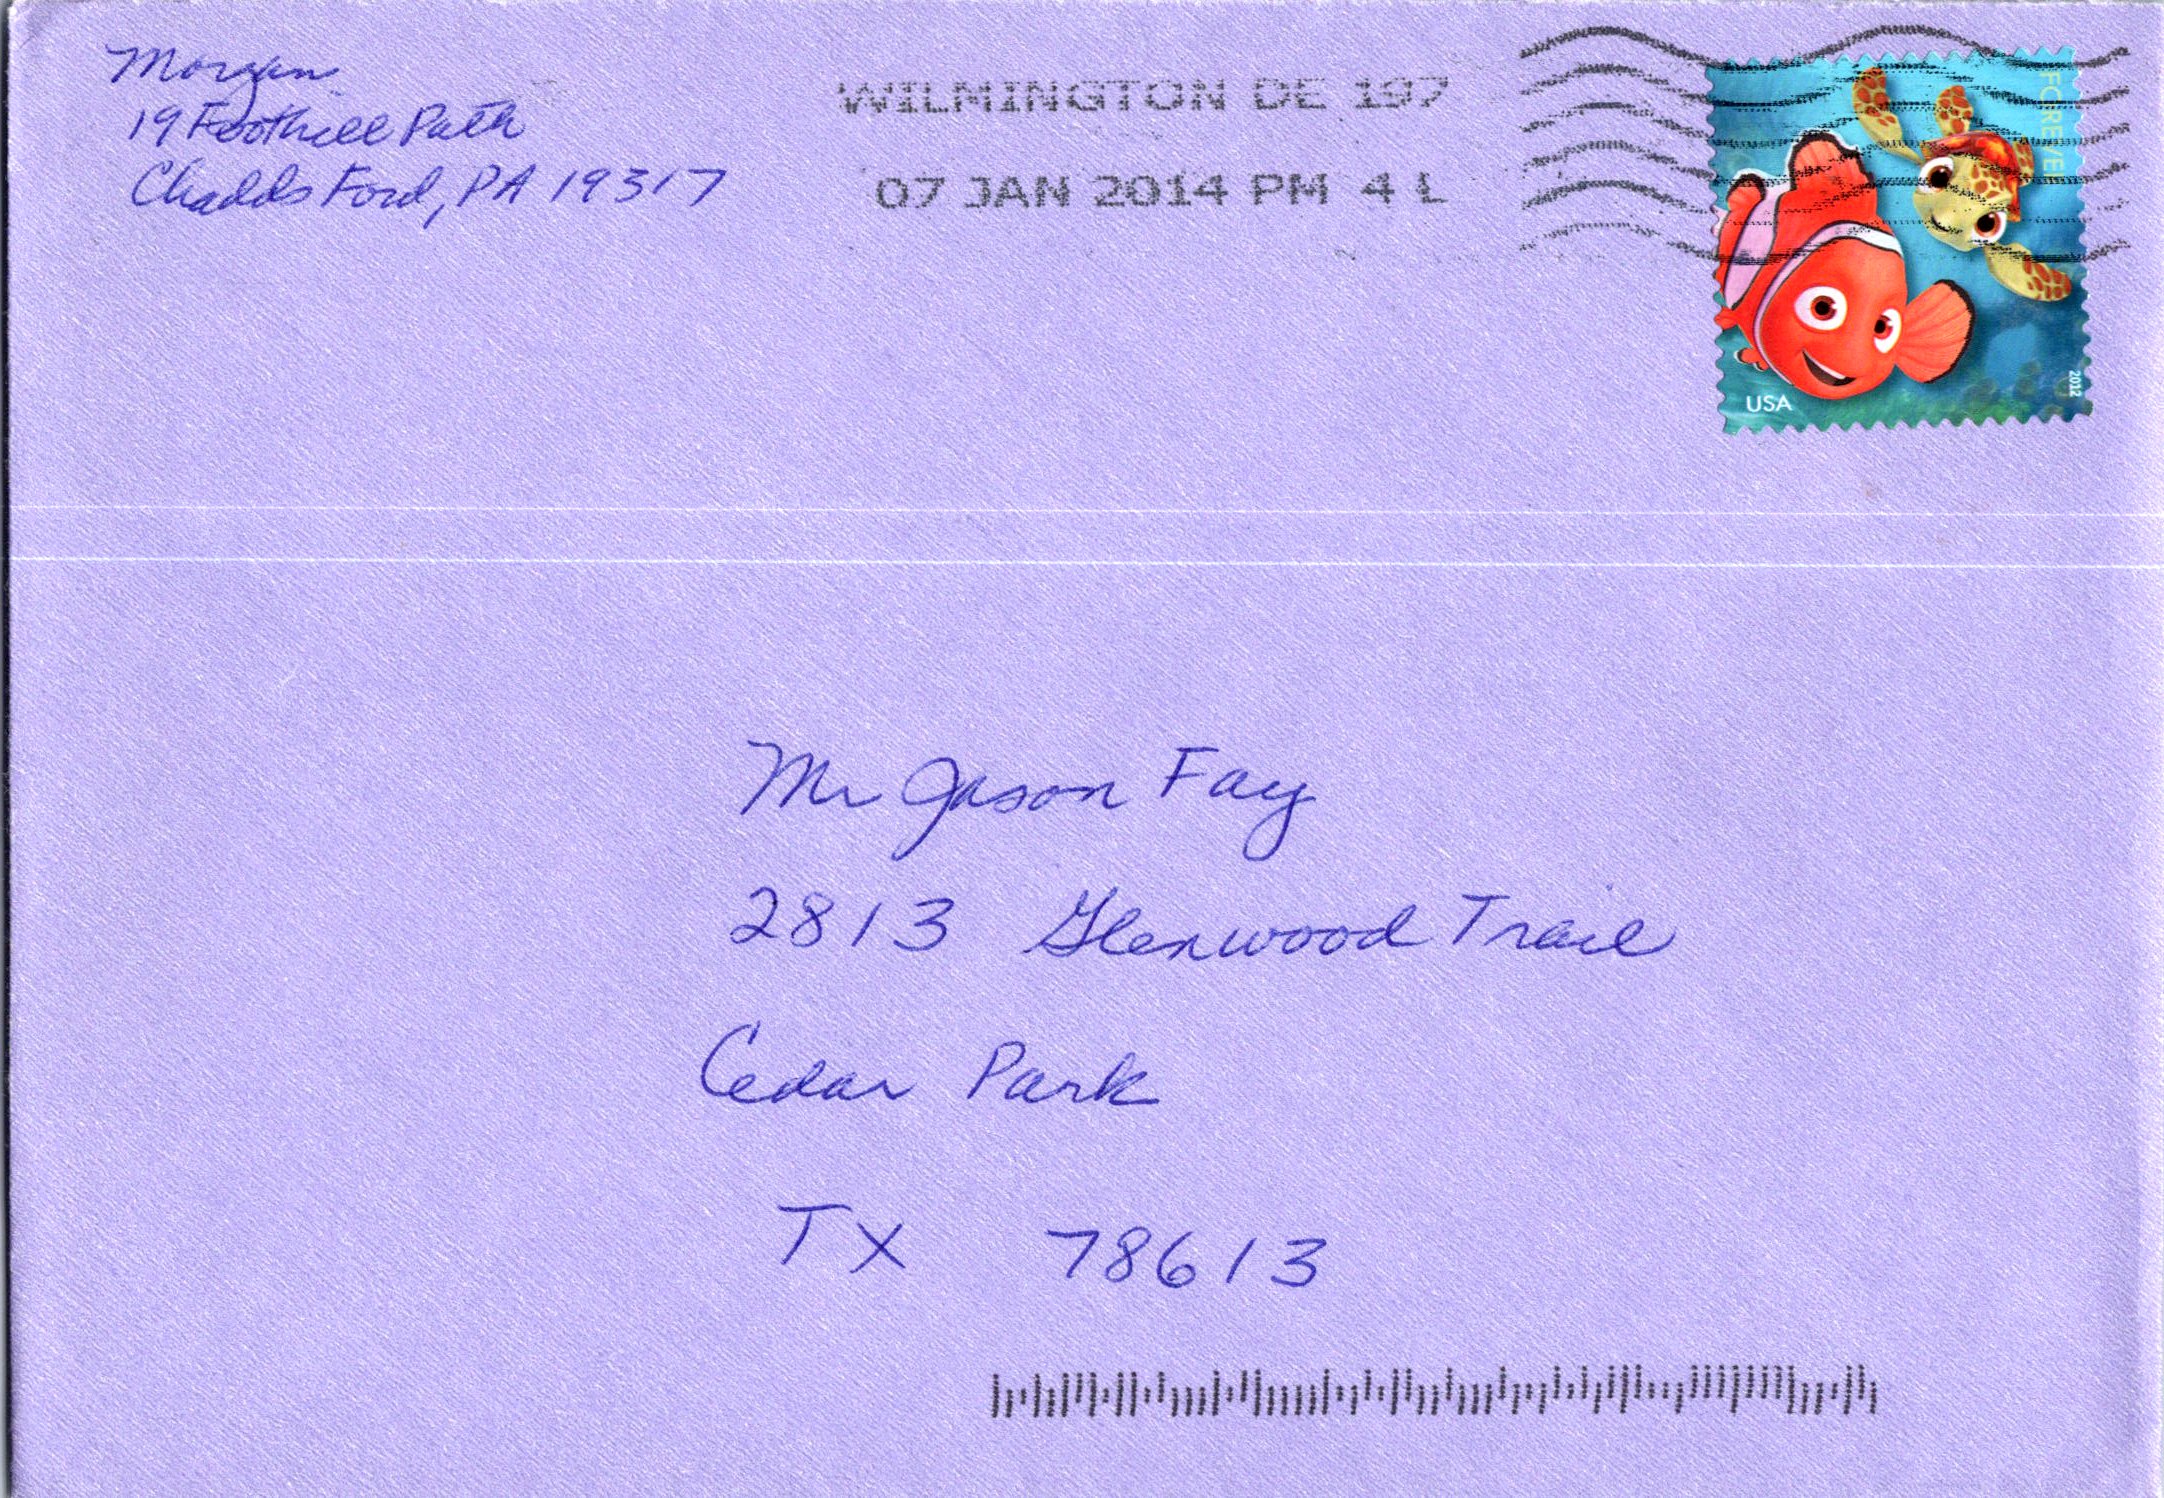 Morgan
19 Foothill Path
Chadds Ford, PA 19317
WILMINGTON DE 197
07 JAN 2014 PM 4 L
FOREVER
USA
2012
Mr Jason Fay
2813 Glenwood Trail
Cedar Park
TX 78613